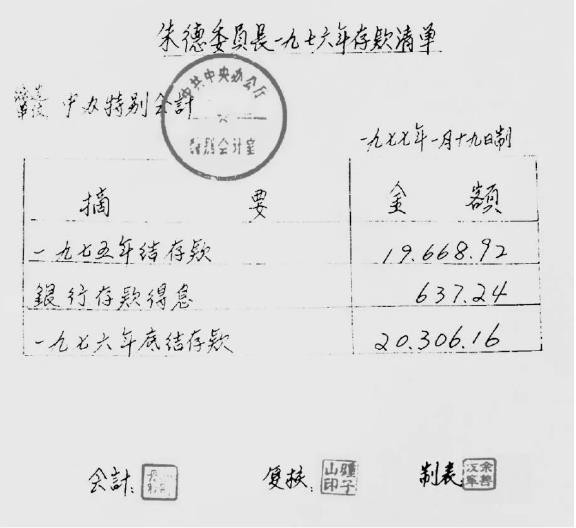 朱德委員長一九七六年存款清单
中共中央办公厅
特别会计室
中办特别会計
一九七七年一月十九日制
摘 要 金 額
一九七五年结存款 19.668.92
銀行存款得息 637.24
一九七六年底结存款 20.306.16
会計:
复核:
制表